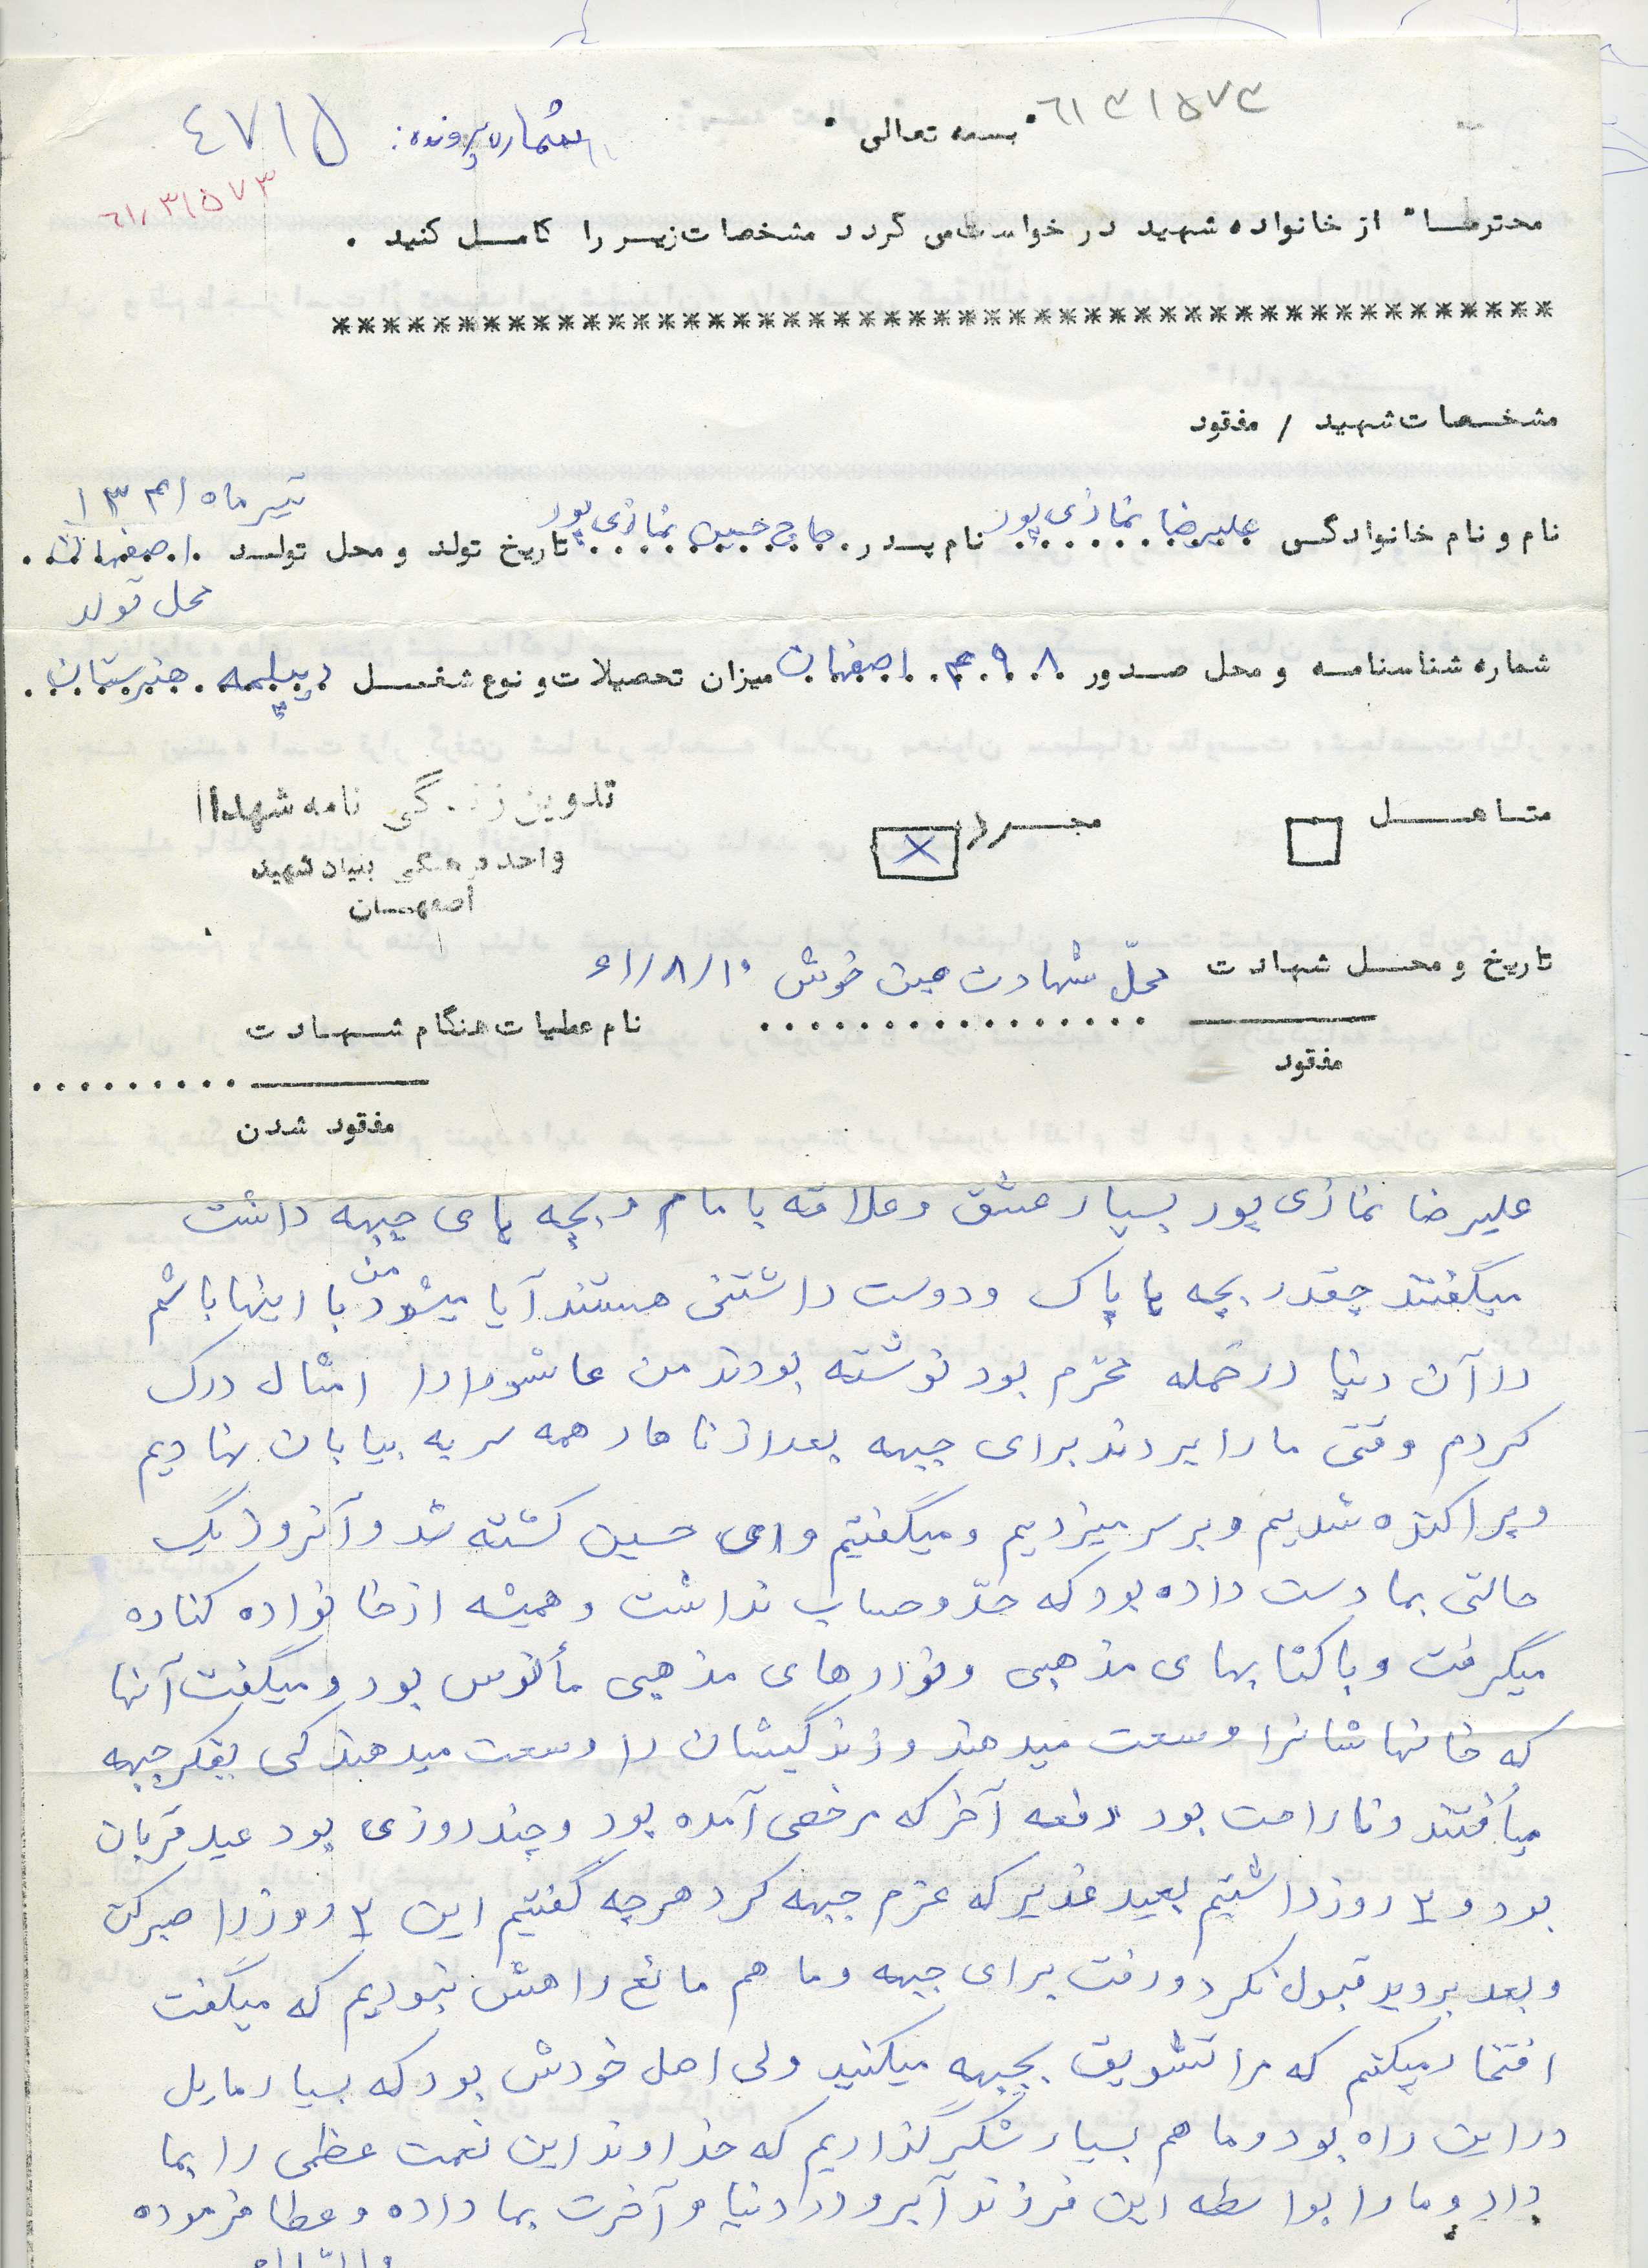 ۶۱۳۱۵۷۳
بسمه تعالی
شماره پرونده: ۴۷۱۵
۶۱٫۳۱۵۷۳
محترما" از خانواده شهید درخواست می گردد مشخصات زیر را کامل کنید .
************************************************
مشخصات شهید / مفقود
نام و نام خانوادگی علیرضا نمازی پور نام پدر حاج حسین نمازی پور تاریخ تولد و محل تولد تیر ماه ۱۳۴۱ اصفهان
محل تولد
شماره شناسنامه و محل صدور ۴۹۸ اصفهان میزان تحصیلات و نوع شغل دیپلمه هنرستان
متاهل مجرد X
تدوین زندگی نامه شهدا
واحد فرهنگی بنیاد شهید
اصفهان
تاریخ و محل شهادت محلّ شهادت عین خوش ۶۱/۸/۱۰
مفقود
نام عملیات هنگام شهادت
مفقود شدن
علیرضا نمازی پور بسیار عشق و علاقه بامام و بچه های جبهه داشت
میگفتند چقدر بچه ها پاک و دوست داشتنی هستند آیا میشود من با اینها باشم
در آن دنیا در حمله محرم بود نوشته بودند من عاشورا را امثال درک
کردم وقتی ما را بردند برای جبهه بعد از ناهار همه سر به بیابان نهادیم
و پراکنده شدیم و بر سر میزدیم و میگفتیم وای حسین کشته شد و آنروز یک
حالتی بما دست داده بود که حدّ و حساب نداشت و همیشه از خانواده کناره
میگرفت و با کتابهای مذهبی و نوارهای مذهبی مأنوس بود و میگفت آنها
که خانهاشانرا وسعت میدهند و زندگیشان را وسعت میدهند کی بفکر جبهه
میأفتند و ناراحت بود دفعه آخر که مرخصی آمده بود و چند روزی بود عید قربان
بود و ۲ روز داشتیم بعید غدیر که عزم جبهه کرد هرچه گفتیم این ۲ روز را صبر کن
و بعد بروید قبول نکرد و رفت برای جبهه و ما هم مانع راهش نبودیم که میگفت
افتخار میکنم که مرا تشویق بجبهه میکنید ولی اصل خودش بود که بسیار مایل
در این راه بود و ما هم بسیار شکرگذاریم که خداوند این نعمت عظمی را بما
داد و ما را بواسطه این فرزند آبرو در دنیا و آخرت بما داده و عطا فرموده
والسّلام